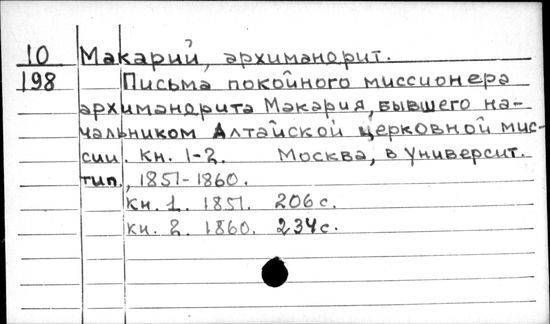 10 Макарий, архимандрит.
198 Письма покойного миссионера
архимандрита Макария, бывшего на-
чальником Алтайской церковной мис-
сии. кн. 1-2. Москва, в Университ.
тип., 1851-1860.
кн. 1. 1851. 206 с.
кн. 2. 1860. 234 с.